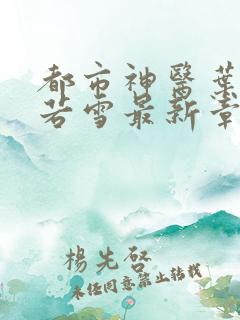 都市神醫葉
若雪最新章
楊先啓
未经同意禁止转载